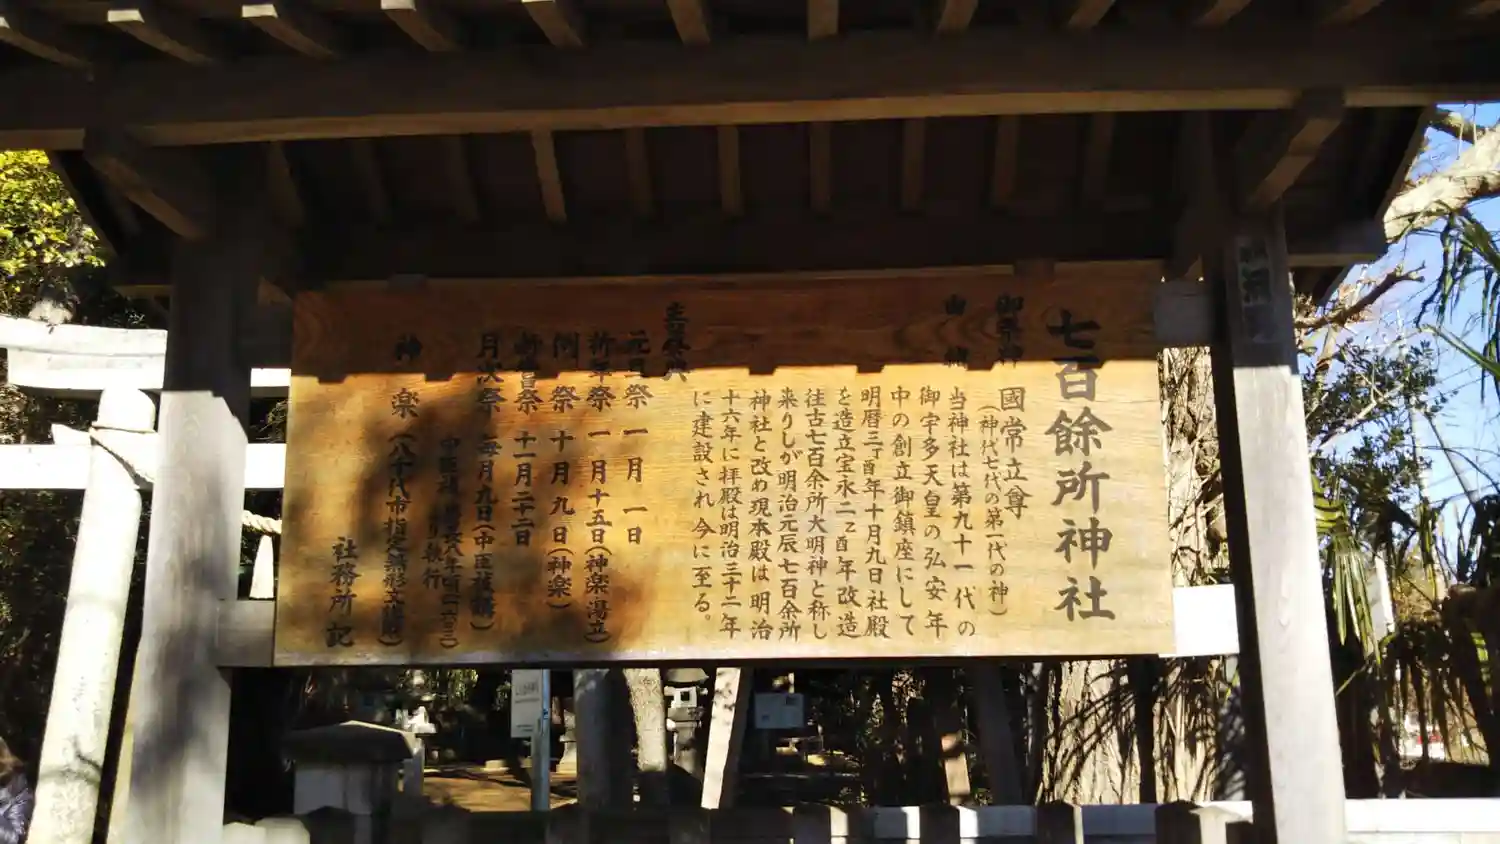 七百餘所神社
御祭神 國常立尊
(神代七代の第一代の神)
由緒 当神社は第九十一代の
御宇多天皇の弘安年
中の創立御鎮座にして
明暦三丁酉年十月九日社殿
を造立宝永二乙酉年改造
往古七百余所大明神と称し
来りしが明治元辰七百余所
神社と改め現本殿は明治
十六年に拝殿は明治三十二年
に建設され今に至る。
主要祭典
元旦祭 一月一日
祈年祭 一月十五日(神楽湯立)
例祭 十月九日(神楽)
新嘗祭 十一月二十二日
月次祭 毎月九日(中臣祓講)
中臣祓講 八年頃(一六〇三)
より執行
神楽(八千代市指定無形文化財)
社務所記